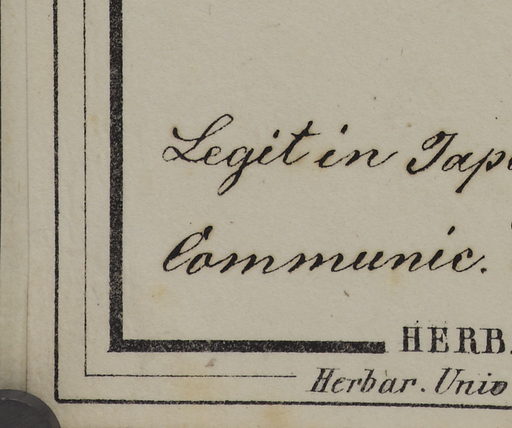 Legit in Jap
Communic.
HERB.
Herbar. Univ